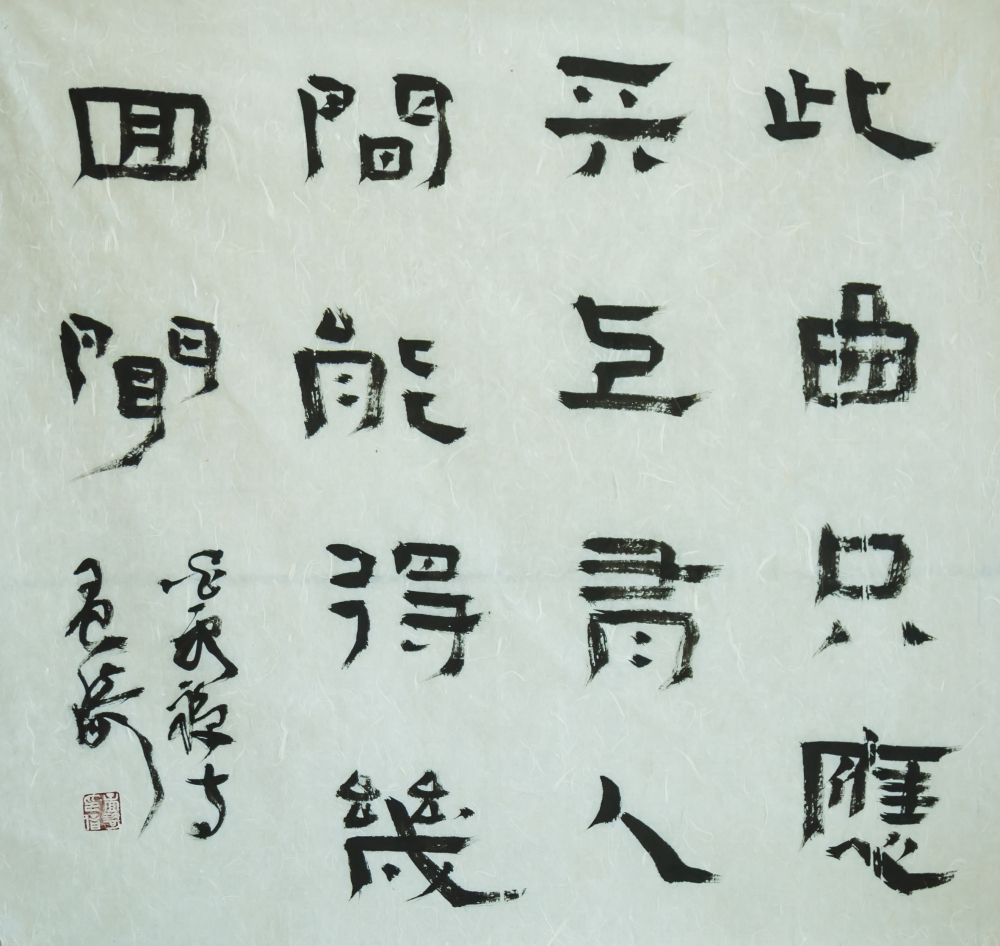 此曲只應
天上有人
間能得幾
回聞
禪寺